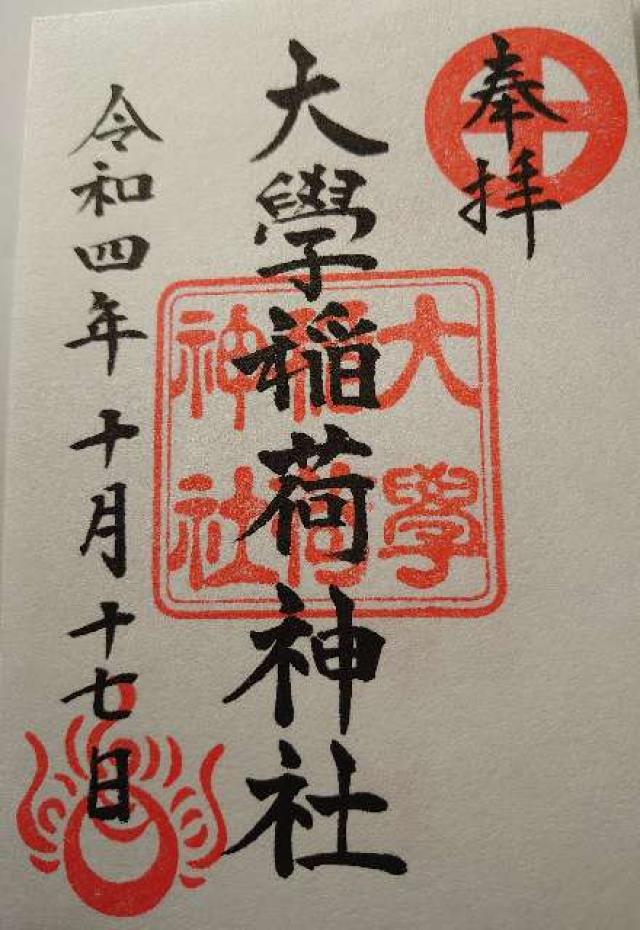 奉拝
大學稲荷神社
大學稲荷神社
令和四年十月十七日